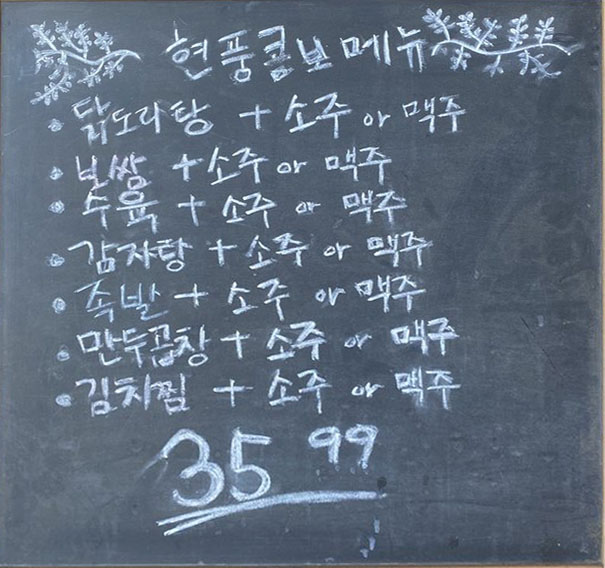 현풍콤보메뉴
• 닭도리탕 + 소주 or 맥주
• 보쌈 + 소주 or 맥주
• 수육 + 소주 or 맥주
• 감자탕 + 소주 or 맥주
• 족발 + 소주 or 맥주
• 만두곱창 + 소주 or 맥주
• 김치찜 + 소주 or 맥주
35 99